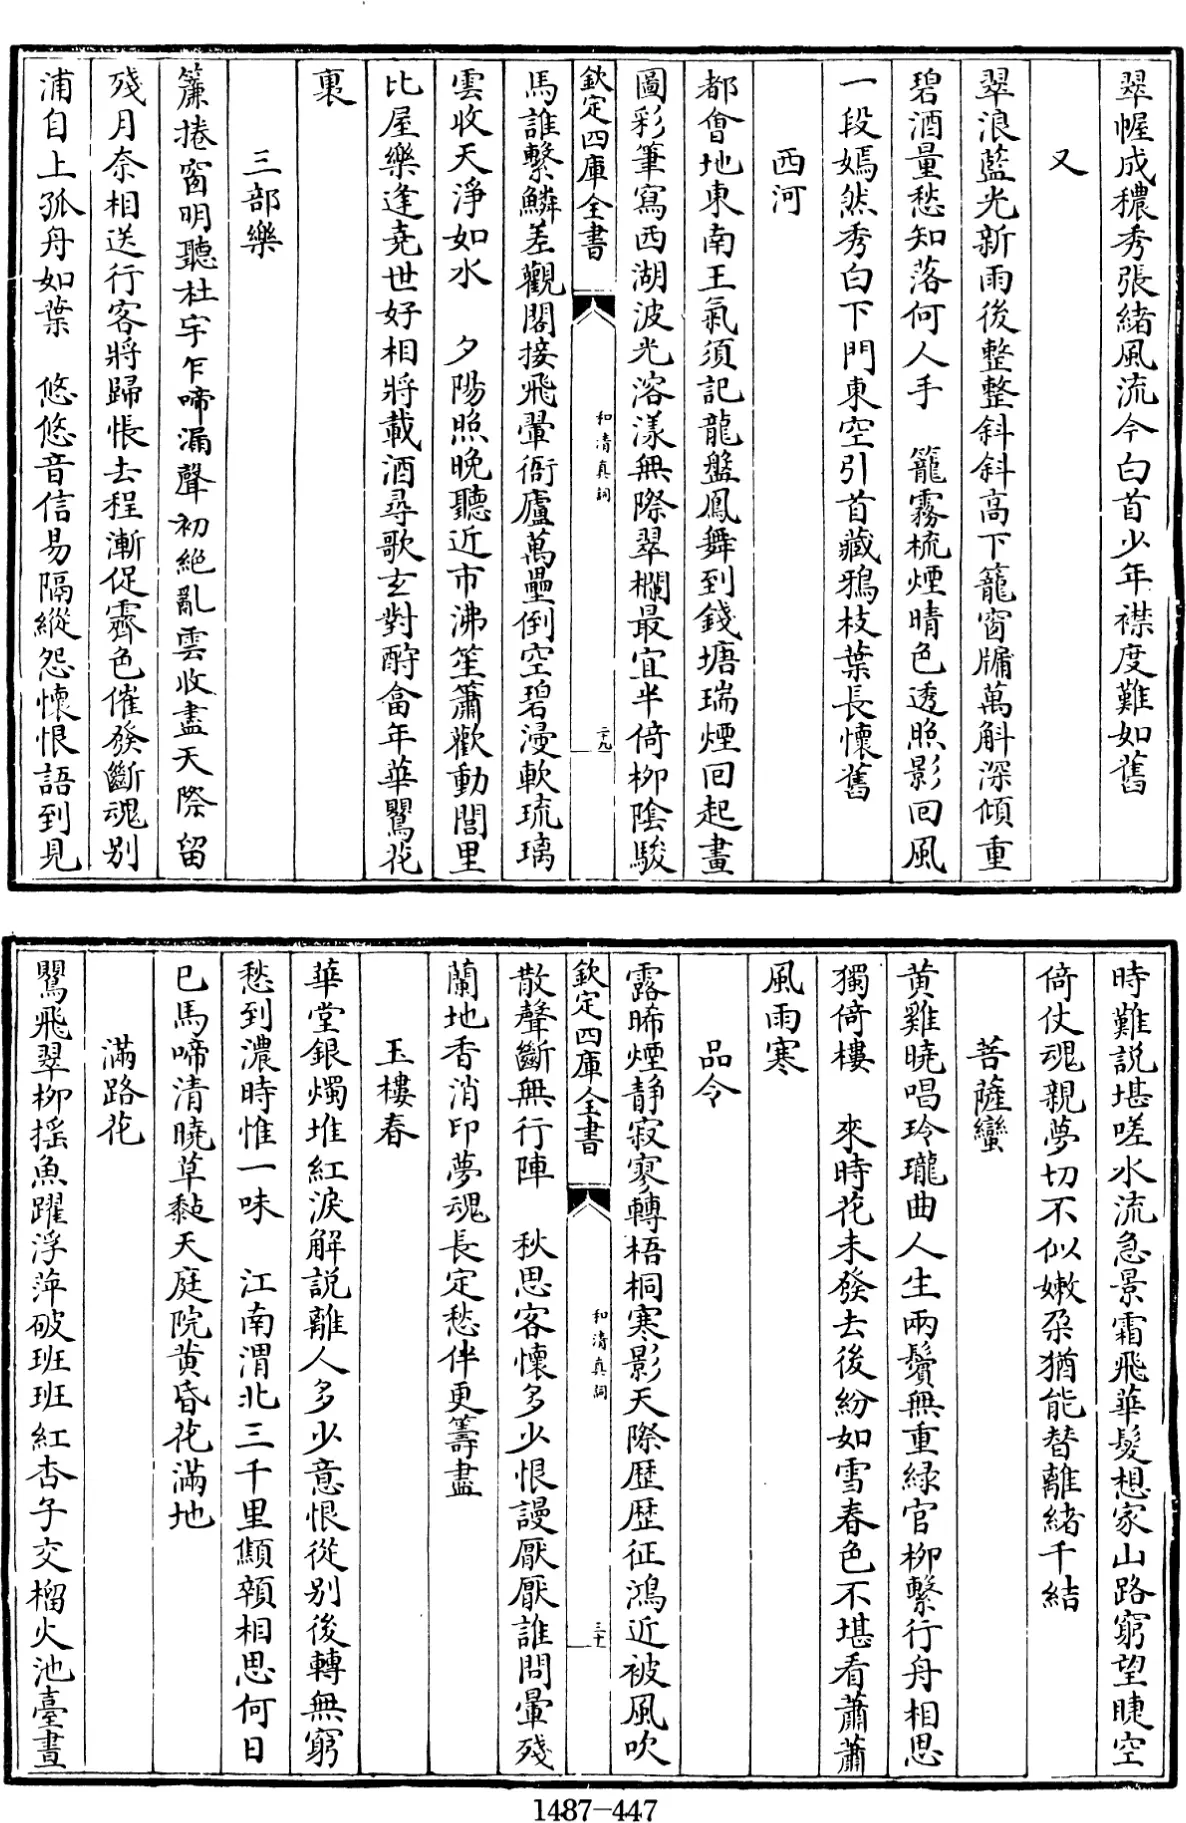 翠幄成穠秀張緒風流今白首少年襟度難如舊
又
翠浪藍光新雨後整整斜斜高下籠窗牖萬斛深傾重
碧酒量愁知落何人手　籠霧梳煙晴色透照影回風
一段嫣然秀白下門東空引首藏鴉枝葉長懷舊
西河
都會地東南王氣須記龍盤鳳舞到錢塘瑞煙回起畫
圖彩筆寫西湖波光溶漾無際翠欄最宜半倚柳陰駿
欽定四庫全書
和清真詞
二十九
馬誰繫鱗差觀閣接飛翬衙廬萬壘倒空碧漫軟琉璃
雲收天淨如水　夕陽照晚聽近市沸笙簫歡動閭里
比屋樂逢堯世好相將載酒尋歌玄對酧畲年華鸎花
裏
三部樂
簾捲窗明聽杜宇乍啼漏聲初絕亂雲收盡天際留
殘月奈相送行客將歸悵去程漸促霽色催發斷魂別
浦自上孤舟如葉　悠悠音信易隔縱怨懷恨語到見
時難説堪嗟水流急景霜飛華髮想家山路窮望睫空
倚仗魂親夢切不似嫩朶猶能替離緒千結
菩薩蠻
黃雞曉唱玲瓏曲人生兩鬢無重緑官柳繫行舟相思
獨倚樓　來時花未發去後紛如雪春色不堪看蕭蕭
風雨寒
品令
露晞煙静寂寥轉梧桐寒影天際歴歴征鴻近被風吹
欽定四庫全書
和清真詞
三十
散聲斷無行陣　秋思客懷多少恨謾厭厭誰問暈殘
蘭地香消印夢魂長定愁伴更籌盡
玉樓春
華堂銀燭堆紅淚解説離人多少意恨從別後轉無窮
愁到濃時惟一味　江南渭北三千里顦顇相思何日
已馬啼清曉草黏天庭院黃昏花滿地
滿路花
鸎飛翠柳揺魚躍浮萍破班班紅杏子交榴火池臺晝
1487-447